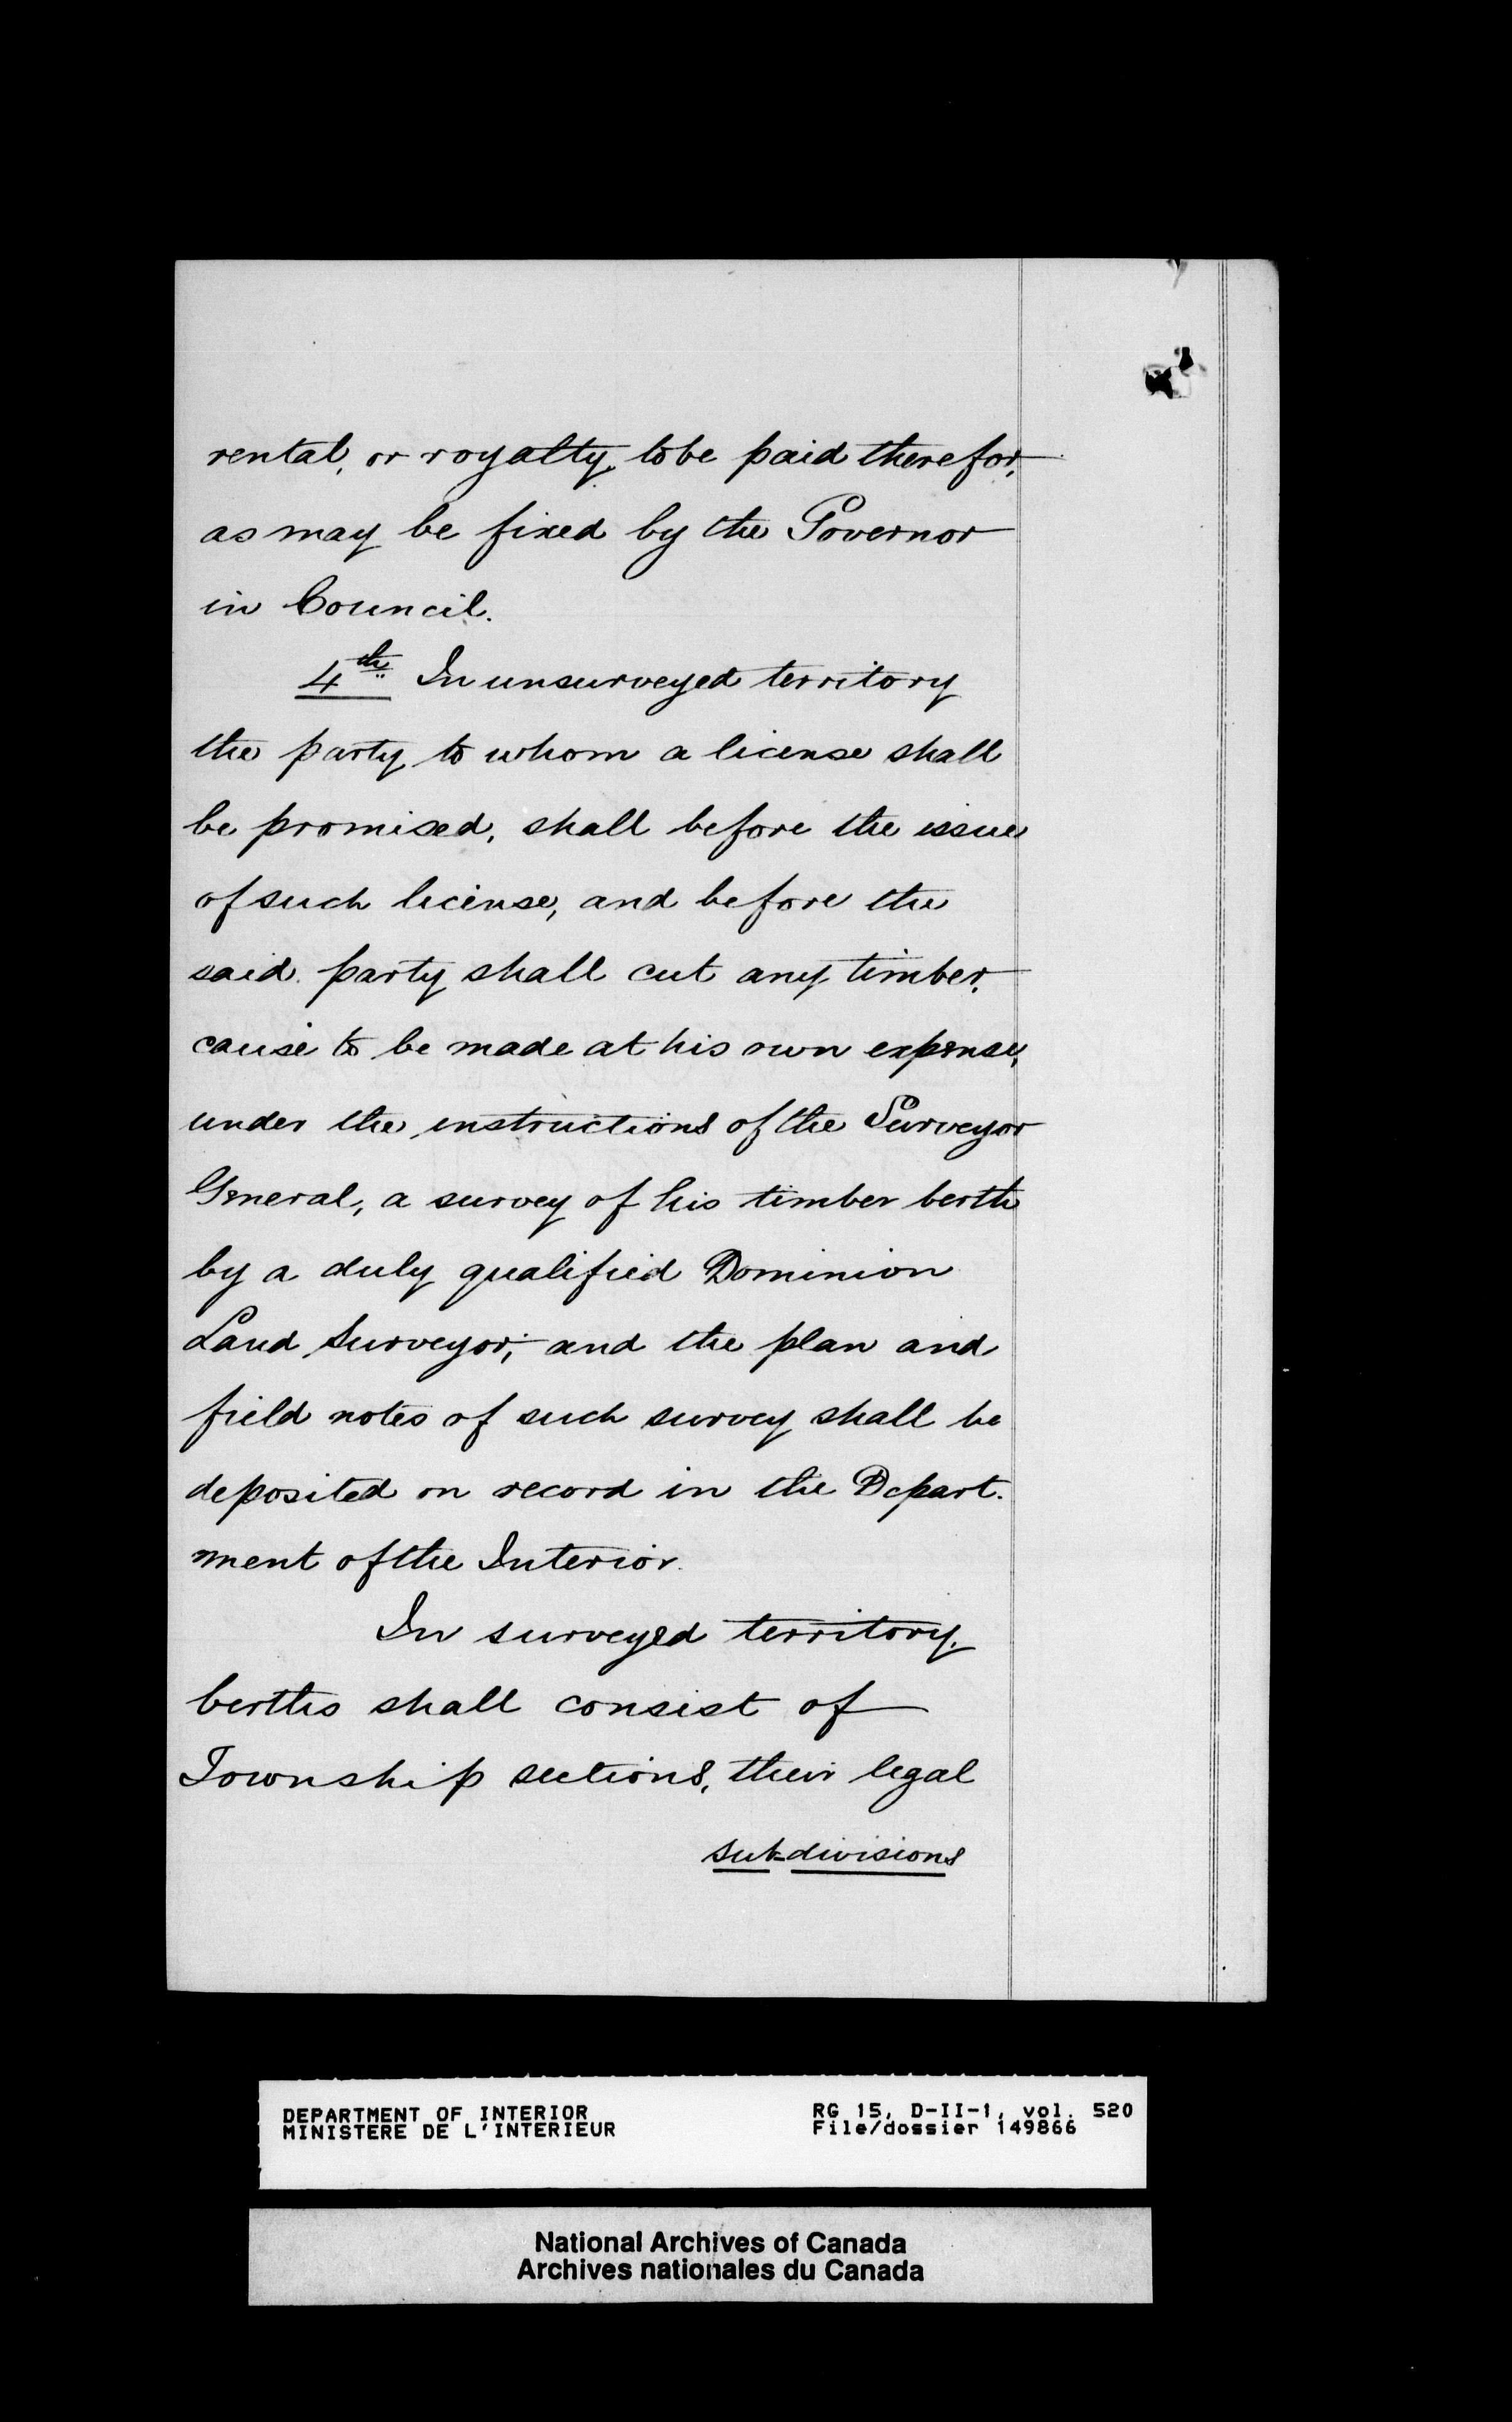 rental, or royalty, to be paid therefor,
as may be fixed by the Governor
in Council.
4th In unsurveyed territory
the party to whom a license shall
be promised, shall before the issue
of such license, and before the
said party shall cut any timber,
cause to be made at his own expense,
under the instructions of the Surveyor
General, a survey of his timber berth
by a duly qualified Dominion
Land Surveyor; and the plan and
field notes of such survey shall be
deposited on record in the Depart-
ment of the Interior.
In surveyed territory,
berths shall consist of
Township sections, their legal
sub-divisions
DEPARTMENT OF INTERIOR RG 15, D-II-1, vol. 520
MINISTERE DE L'INTERIEUR File/dossier 149866
National Archives of Canada
Archives nationales du Canada